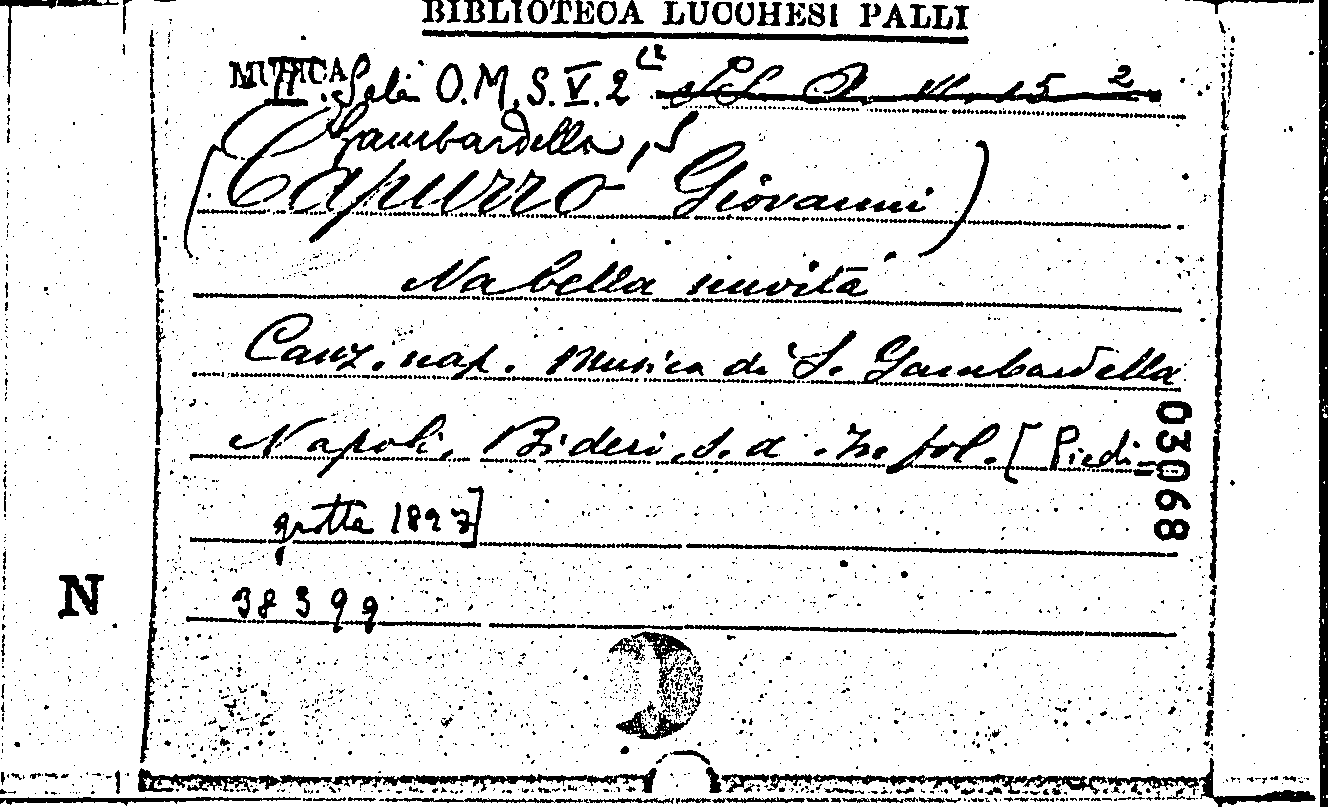 BIBLIOTECA LUCCHESI PALLI
MUSICA
O.M.S. V. 2
Gambardella, S
(Capurro Giovanni)
Na bella nuvità
Canz. nap. Musica di S. Gambardella
Napoli, Bideri, s. d. In fol. [Piedi=
grotta 1897]
38399
N
03068